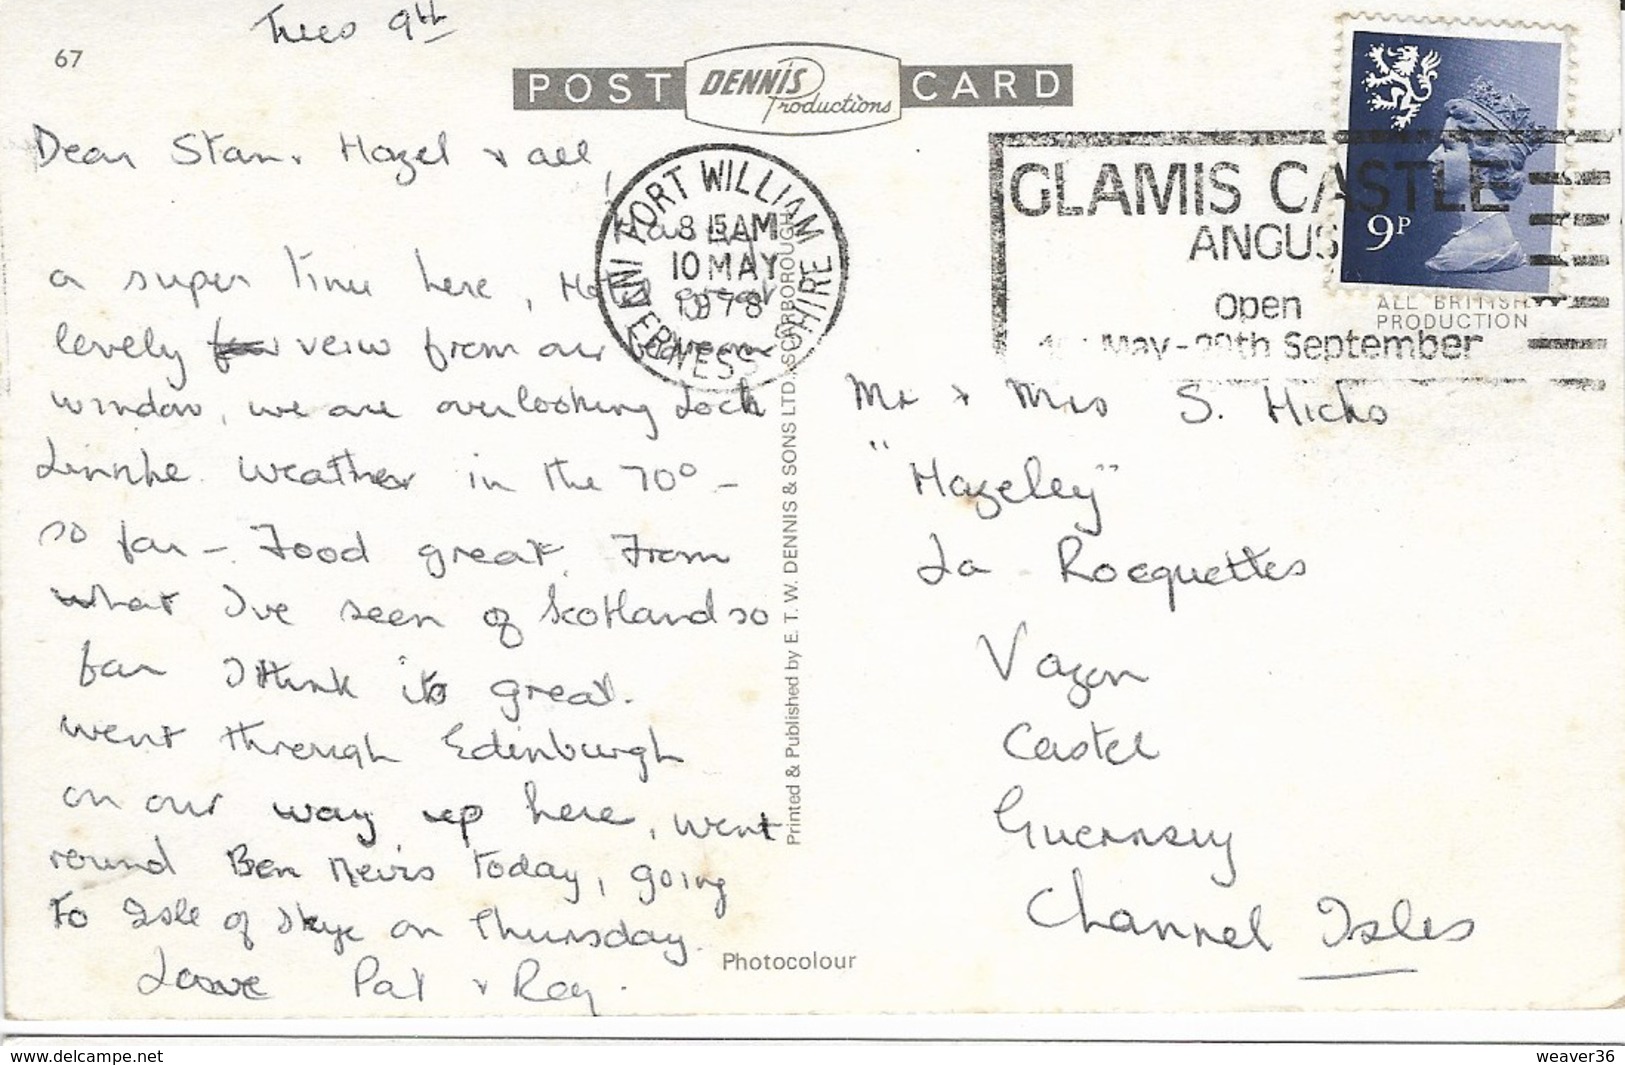 Tues 9th
67
POST DENNIS Productions CARD
Dear Stan, Hazel & all,
Having
a super time here, Hotel great
lovely verw from our bedroom
window, we are overlooking Loch
Linnhe. Weather in the 70° -
so far - Food great. From
what I've seen of Scotland so
far I think its great.
went through Edinburgh
on our way up here, went
round Ben Nevis today, going
to Isle of Skye on Thursday.
Love Pat & Ray.
FORT WILLIAM
8 15 AM
10 MAY
1978
INVERNESS-SHIRE
GLAMIS CASTLE
ANGUS
Open
May-29th September
9P
ALL BRITISH
PRODUCTION
Printed & Published by E. T. W. DENNIS & SONS LTD., SCARBOROUGH
Mr & Mrs S. Hicks
"Hazeley"
La Rocquettes
Vazon
Castel
Guernsey
Channel Isles
Photocolour
www.delcampe.net
weaver36